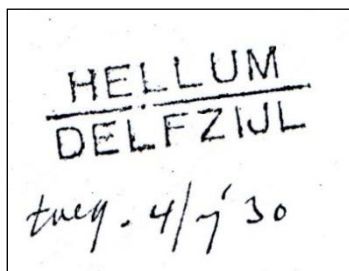 HELLUM
DELFZIJL
toeg. 4/7 '30